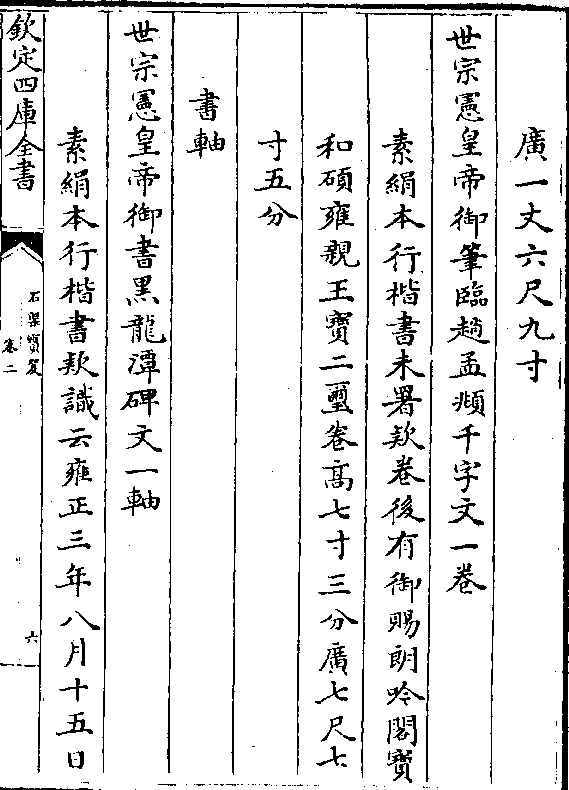 廣一丈六尺九寸
世宗憲皇帝御筆臨趙孟頫千字文一卷
素絹本行楷書未署款卷後有御賜朗吟閣寶
和碩雍親王寶二璽卷高七寸三分廣七尺七
寸五分
書軸
世宗憲皇帝御書黑龍潭碑文一軸
素絹本行楷書款識云雍正三年八月十五日
欽定四庫全書
石渠寳笈
卷二
六